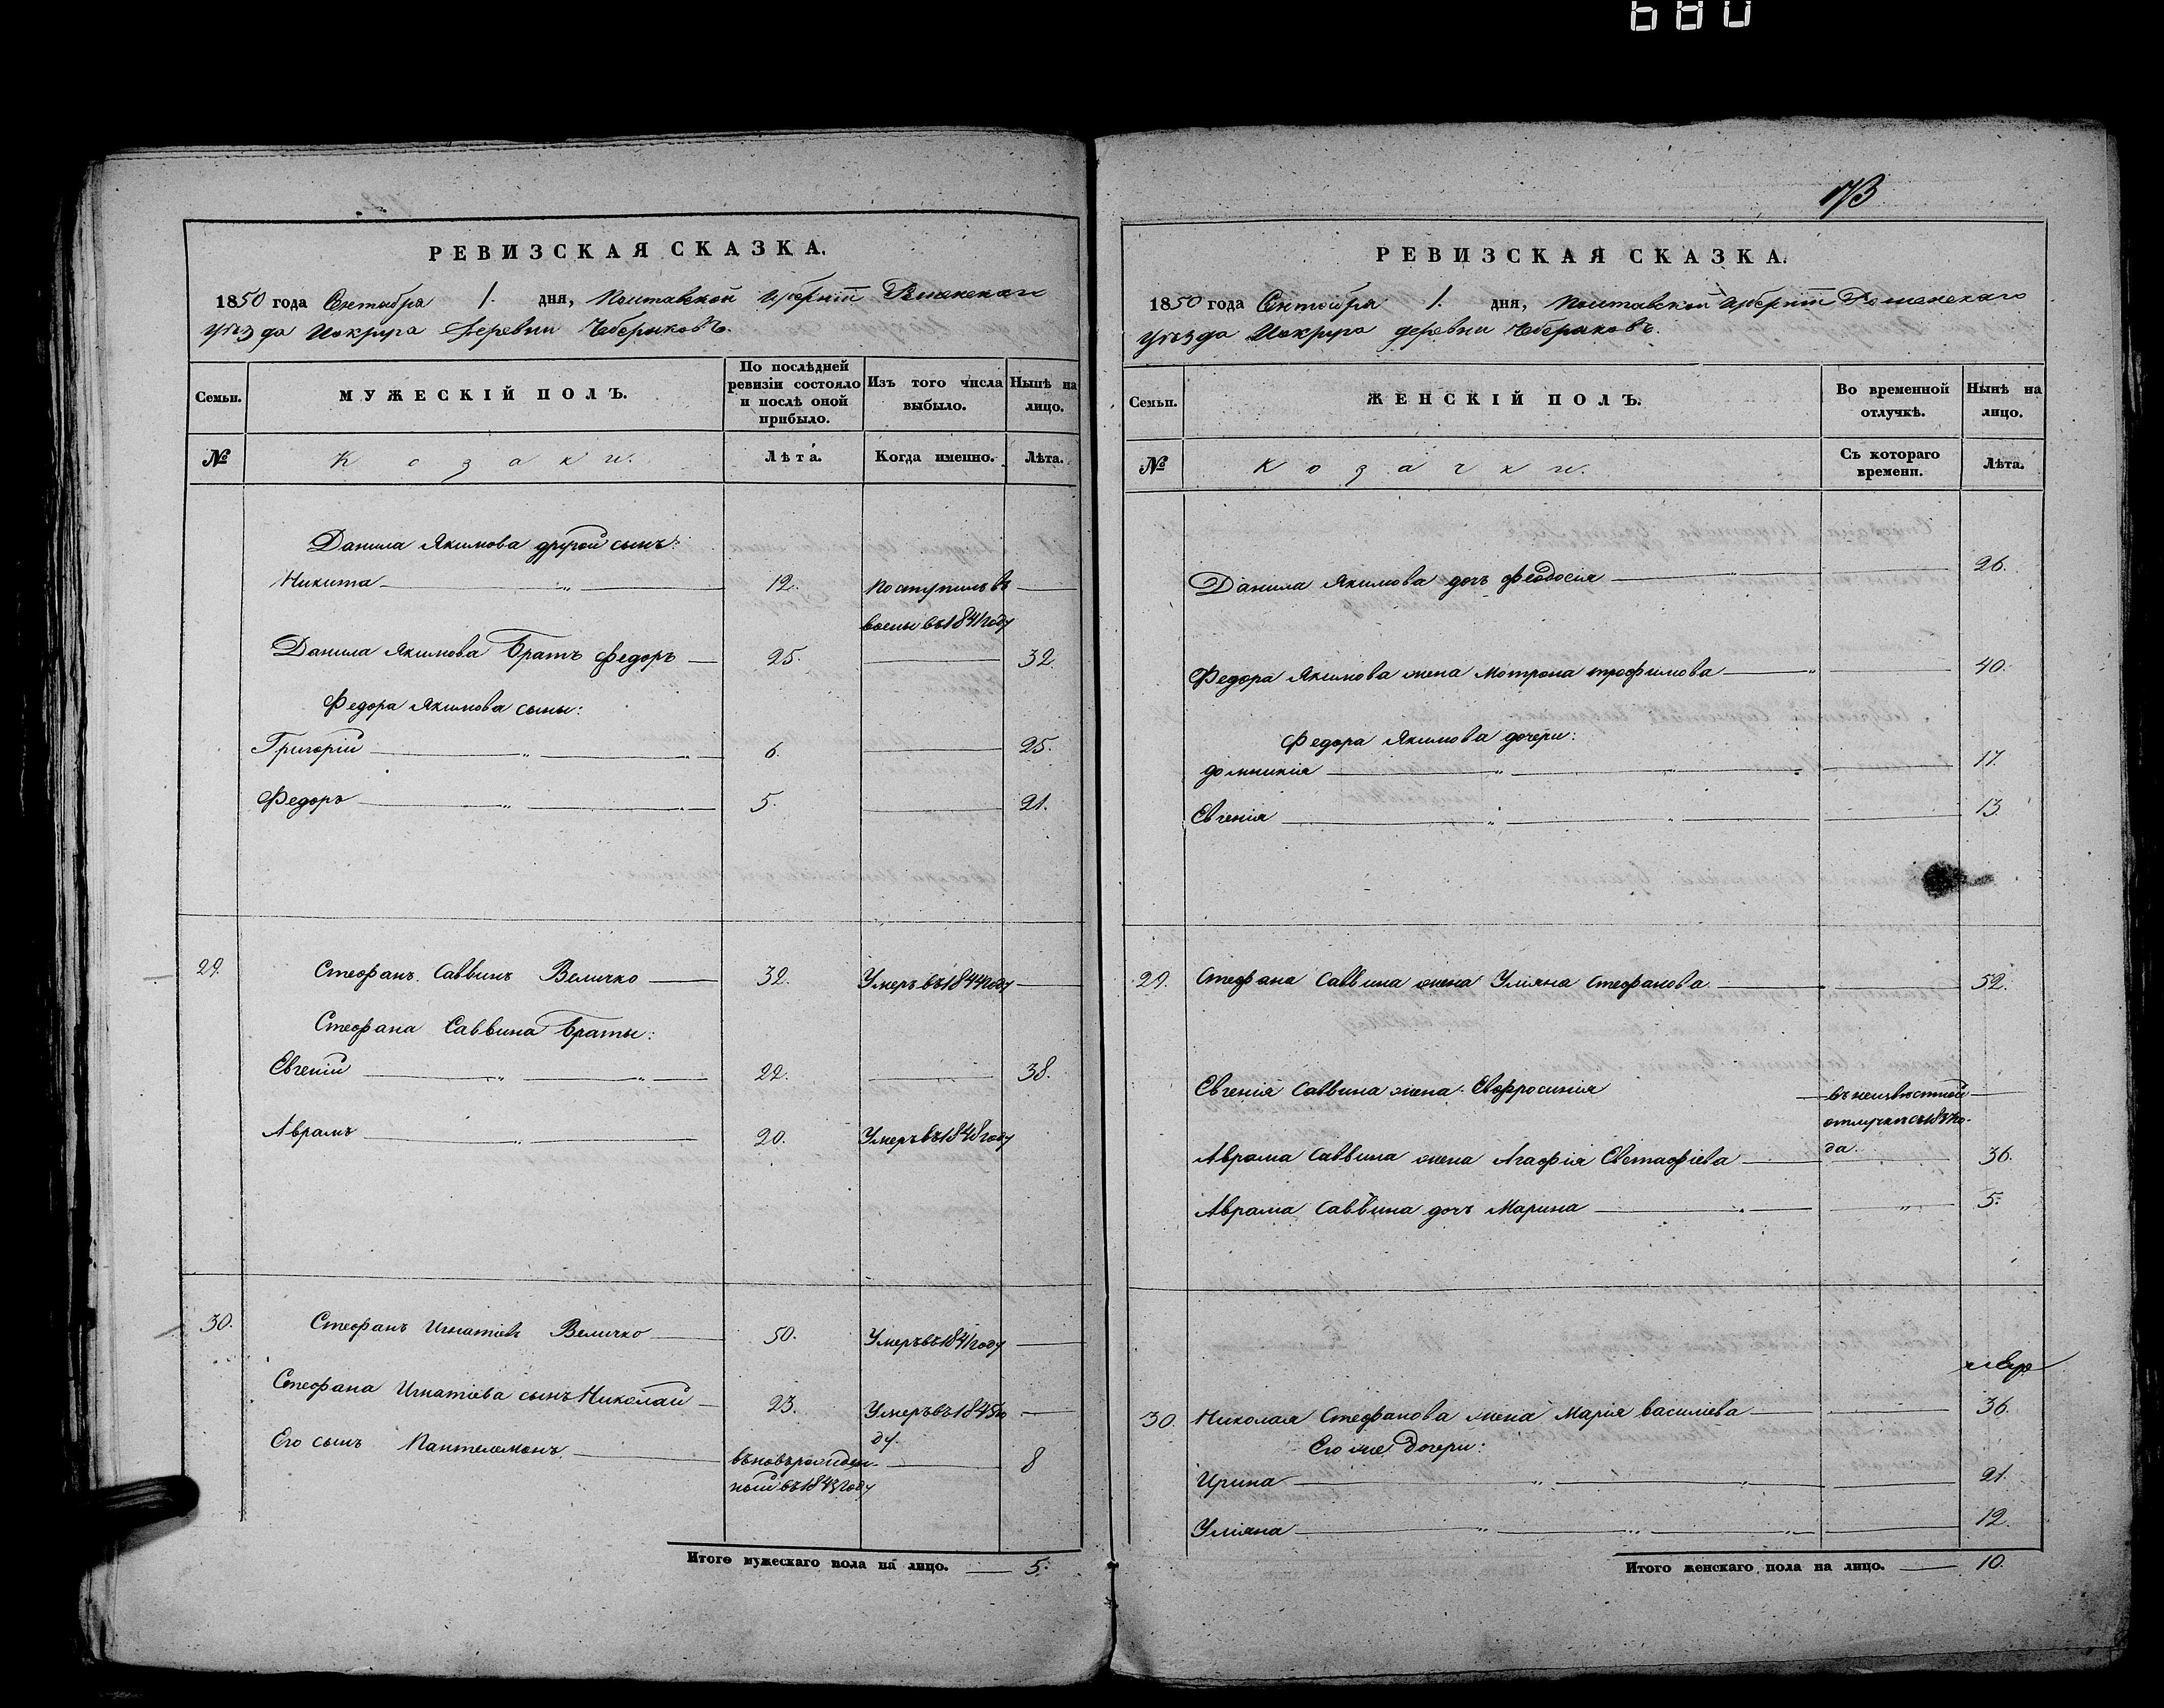 680
РЕВИЗСКАЯ СКАЗКА.
1850 года Октября 1. дня, Полтавской Губерніи Роменскаго
уѣзда Исходра деревни Чеберяковъ.
Семьи.
МУЖЕСКІЙ ПОЛЪ.
По послѣдней ревизіи состояло и послѣ оной прибыло.
Изъ того числа выбыло.
Нынѣ на лицо.
№
Козаки.
Лѣта.
Когда именно.
Лѣта.
Данила Якимова другой сынъ:
Никита 12. Поступилъ въ
въ 1841 году
Данила Якимова братъ Федоръ 25. 32.
Федора Якимова сыны:
Григорій 6. 25.
Федоръ 5. 21.
29. Стефанъ Саввинъ Величко 32. Умеръ въ 1844 году
Стефана Саввина браты:
Евгеній 22. 38.
Аврамъ 20. Умеръ въ 1848 году
30. Стефанъ Игнатіевъ Величко 50. Умеръ въ 1841 году
Стефана Игнатіева сынъ Николай 23. Умеръ въ 1845 го
ду.
Его сынъ Пантелемонъ вновьрожден- 8
ной въ 1843 году
Итого мужескаго пола на лицо. 5.
173
РЕВИЗСКАЯ СКАЗКА.
1850 года Октября 1. дня, Полтавской Губерніи Роменскаго
уѣзда деревни Чеберяковъ.
Семьи.
ЖЕНСКІЙ ПОЛЪ.
Во временной отлучкѣ.
Нынѣ на лицо.
№
Козачки.
Съ котораго времени.
Лѣта.
Данила Якимова дочь Феодосія 26.
Федора Якимова жена Мотрона Трофимова 40.
Федора Якимова дочери:
Домникія 17.
Евгенія 13.
29. Стефана Саввина жена Уліяна Стефанова 52.
Евгенія Саввина жена Евфросинія въ неизвѣстной
отлучкѣ съ го-
да.
Аврама Саввина жена Агафія Евстафіева 36.
Аврама Саввина дочь Марина 5.
30. Николая Стефанова жена Марія Василіева 36.
Его же дочери:
Ирина 21.
Уліяна 12.
Итого женскаго пола на лицо. 10.